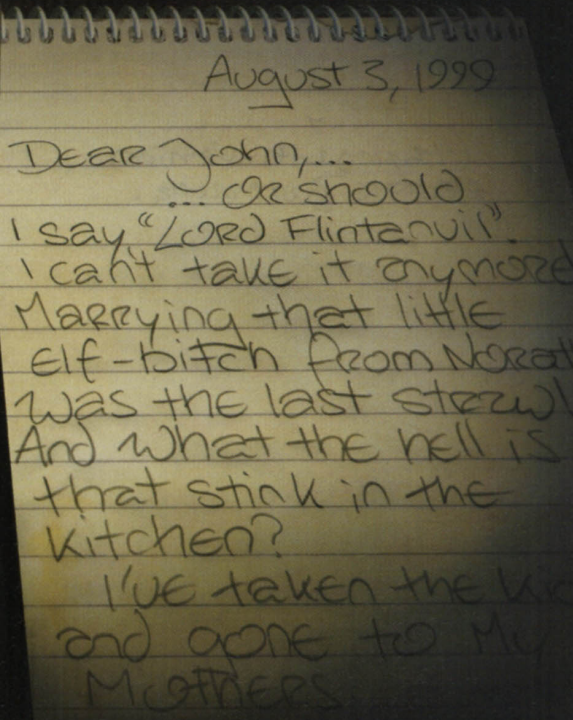 August 3, 1999
Dear John,...
... or should
I say, "Lord Flintanvil".
I can't take it anymore
Marrying that little
elf-bitch from
was the last straw!
And what the hell is
that stink in the
kitchen?
I've taken the
and gone to My
Mothers.